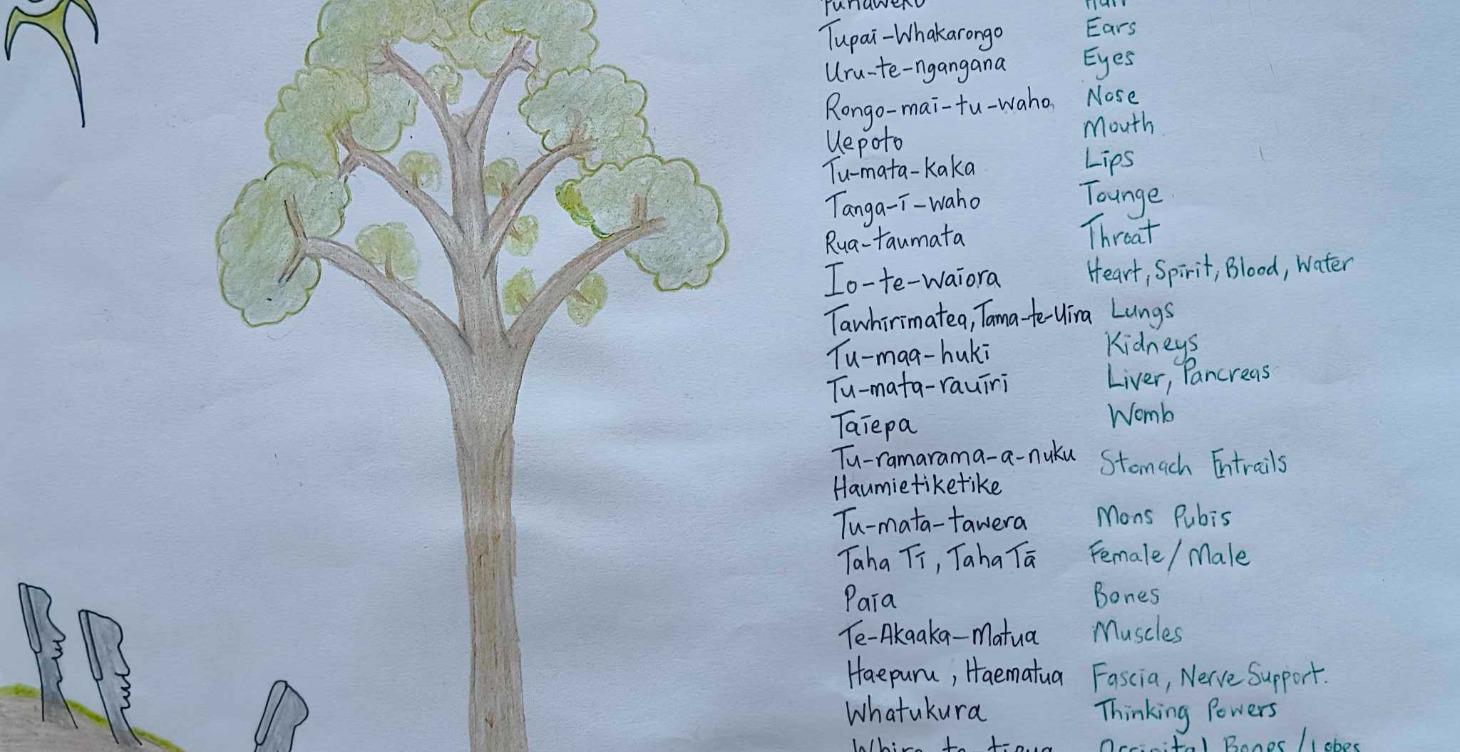 Tupai-Whakarongo Ears
Uru-te-ngangana Eyes
Rongo-mai-tu-waho Nose
Uepoto Mouth
Tu-mata-kaka Lips
Tanga-i-waho Tounge
Rua-taumata Throat
Io-te-waiora Heart, Spirit, Blood, Water
Tawhirimatea, Tama-te-Uira Lungs
Tu-maa-huki Kidneys
Tu-mata-rauiri Liver, Pancreas
Taiepa Womb
Tu-ramarama-a-nuku Stomach Entrails
Haumietiketike
Tu-mata-tawera Mons Pubis
Taha Tī, Taha Tā Female/Male
Paia Bones
Te-Akaaka-Matua Muscles
Haepuru, Haematua Fascia, Nerve Support.
Whatukura Thinking Powers